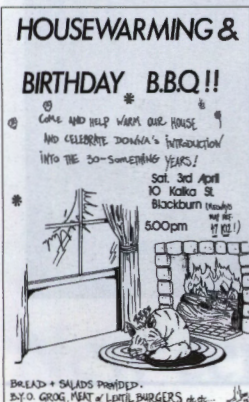 HOUSEWARMING &
BIRTHDAY B.B.Q!!
COME AND HELP WARM OUR HOUSE
AND CELEBRATE DONNA'S INTRODUCTION
INTO THE 30-SOMETHING YEARS!
Sat. 3rd April
10 Kalka St.
Blackburn (Melways
MAP REF.
5.00pm 47 K12!)
BREAD + SALADS PROVIDED.
B.Y.O. GROG, MEAT or LENTIL BURGERS etc etc...